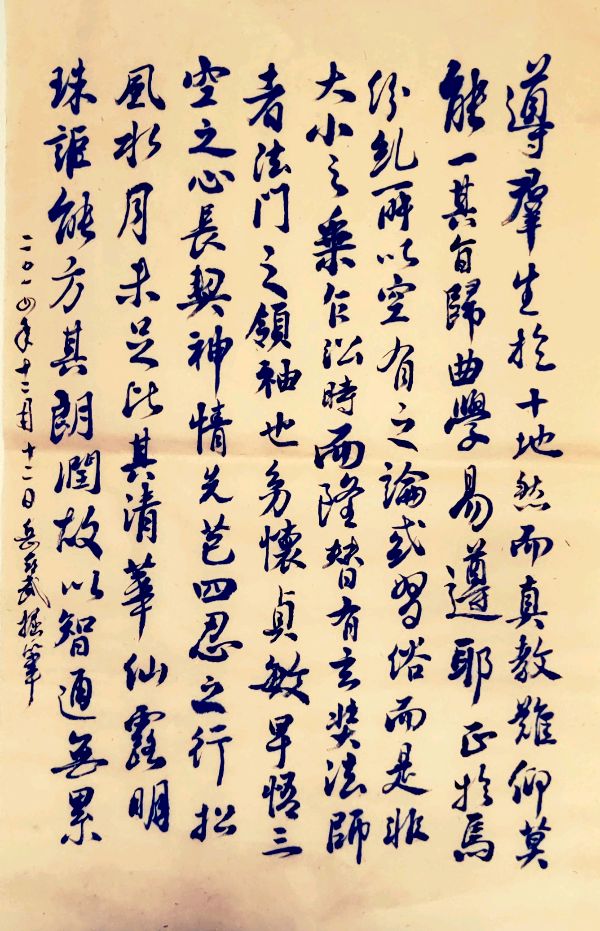 導羣生於十地然而真教難仰莫
能一其旨歸曲學易遵耶正於焉
紛糺所以空有之論或習俗而是非
大小之乘乍沿時而隆替有玄奘法師
者法門之領袖也幼懷貞敏早悟三
空之心長契神情先苞四忍之行松
風水月未足比其清華仙露明
珠詎能方其朗潤故以智通無累
二〇一四年十二月十二日岳武筆